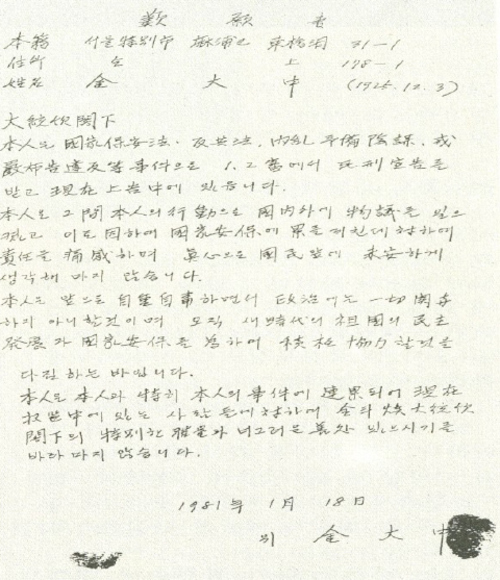 歎 願 書
本籍 서울特別市 麻浦區 東橋洞 31-1
住所 仝 上 178-1
姓名 金 大 中 (1925.12.3)
大統領閣下
本人은 國家保安法, 反共法, 內亂予備陰謀, 戒
嚴布告違反等事件으로 1.2審에서 死刑宣告를
받고 現在 上告中에 있습니다.
本人은 그間 本人의 行動으로 國內外에 物議를 일으
켰고 이로 因하여 國家安保에 累를 끼친데 對하여
責任을 痛感하며 眞心으로 國民앞에 未安하게
생각해 마지 않습니다.
本人은 앞으로 自重自肅하면서 政治에는 一切 關與
하지 아니할것이며 오직 새時代의 祖國의 民主
發展과 國家安保를 爲하여 積極 協力할것을
다짐하는 바입니다.
本人은 本人과 特히 本人의 事件에 連累되어 現在
收監中에 있는 사람들에 對하여 全斗煥大統領
閣下의 特別한 雅量과 너그러운 善處 있으시기를
바라 마지 않습니다.
1981年 1月 18日
위 金 大 中